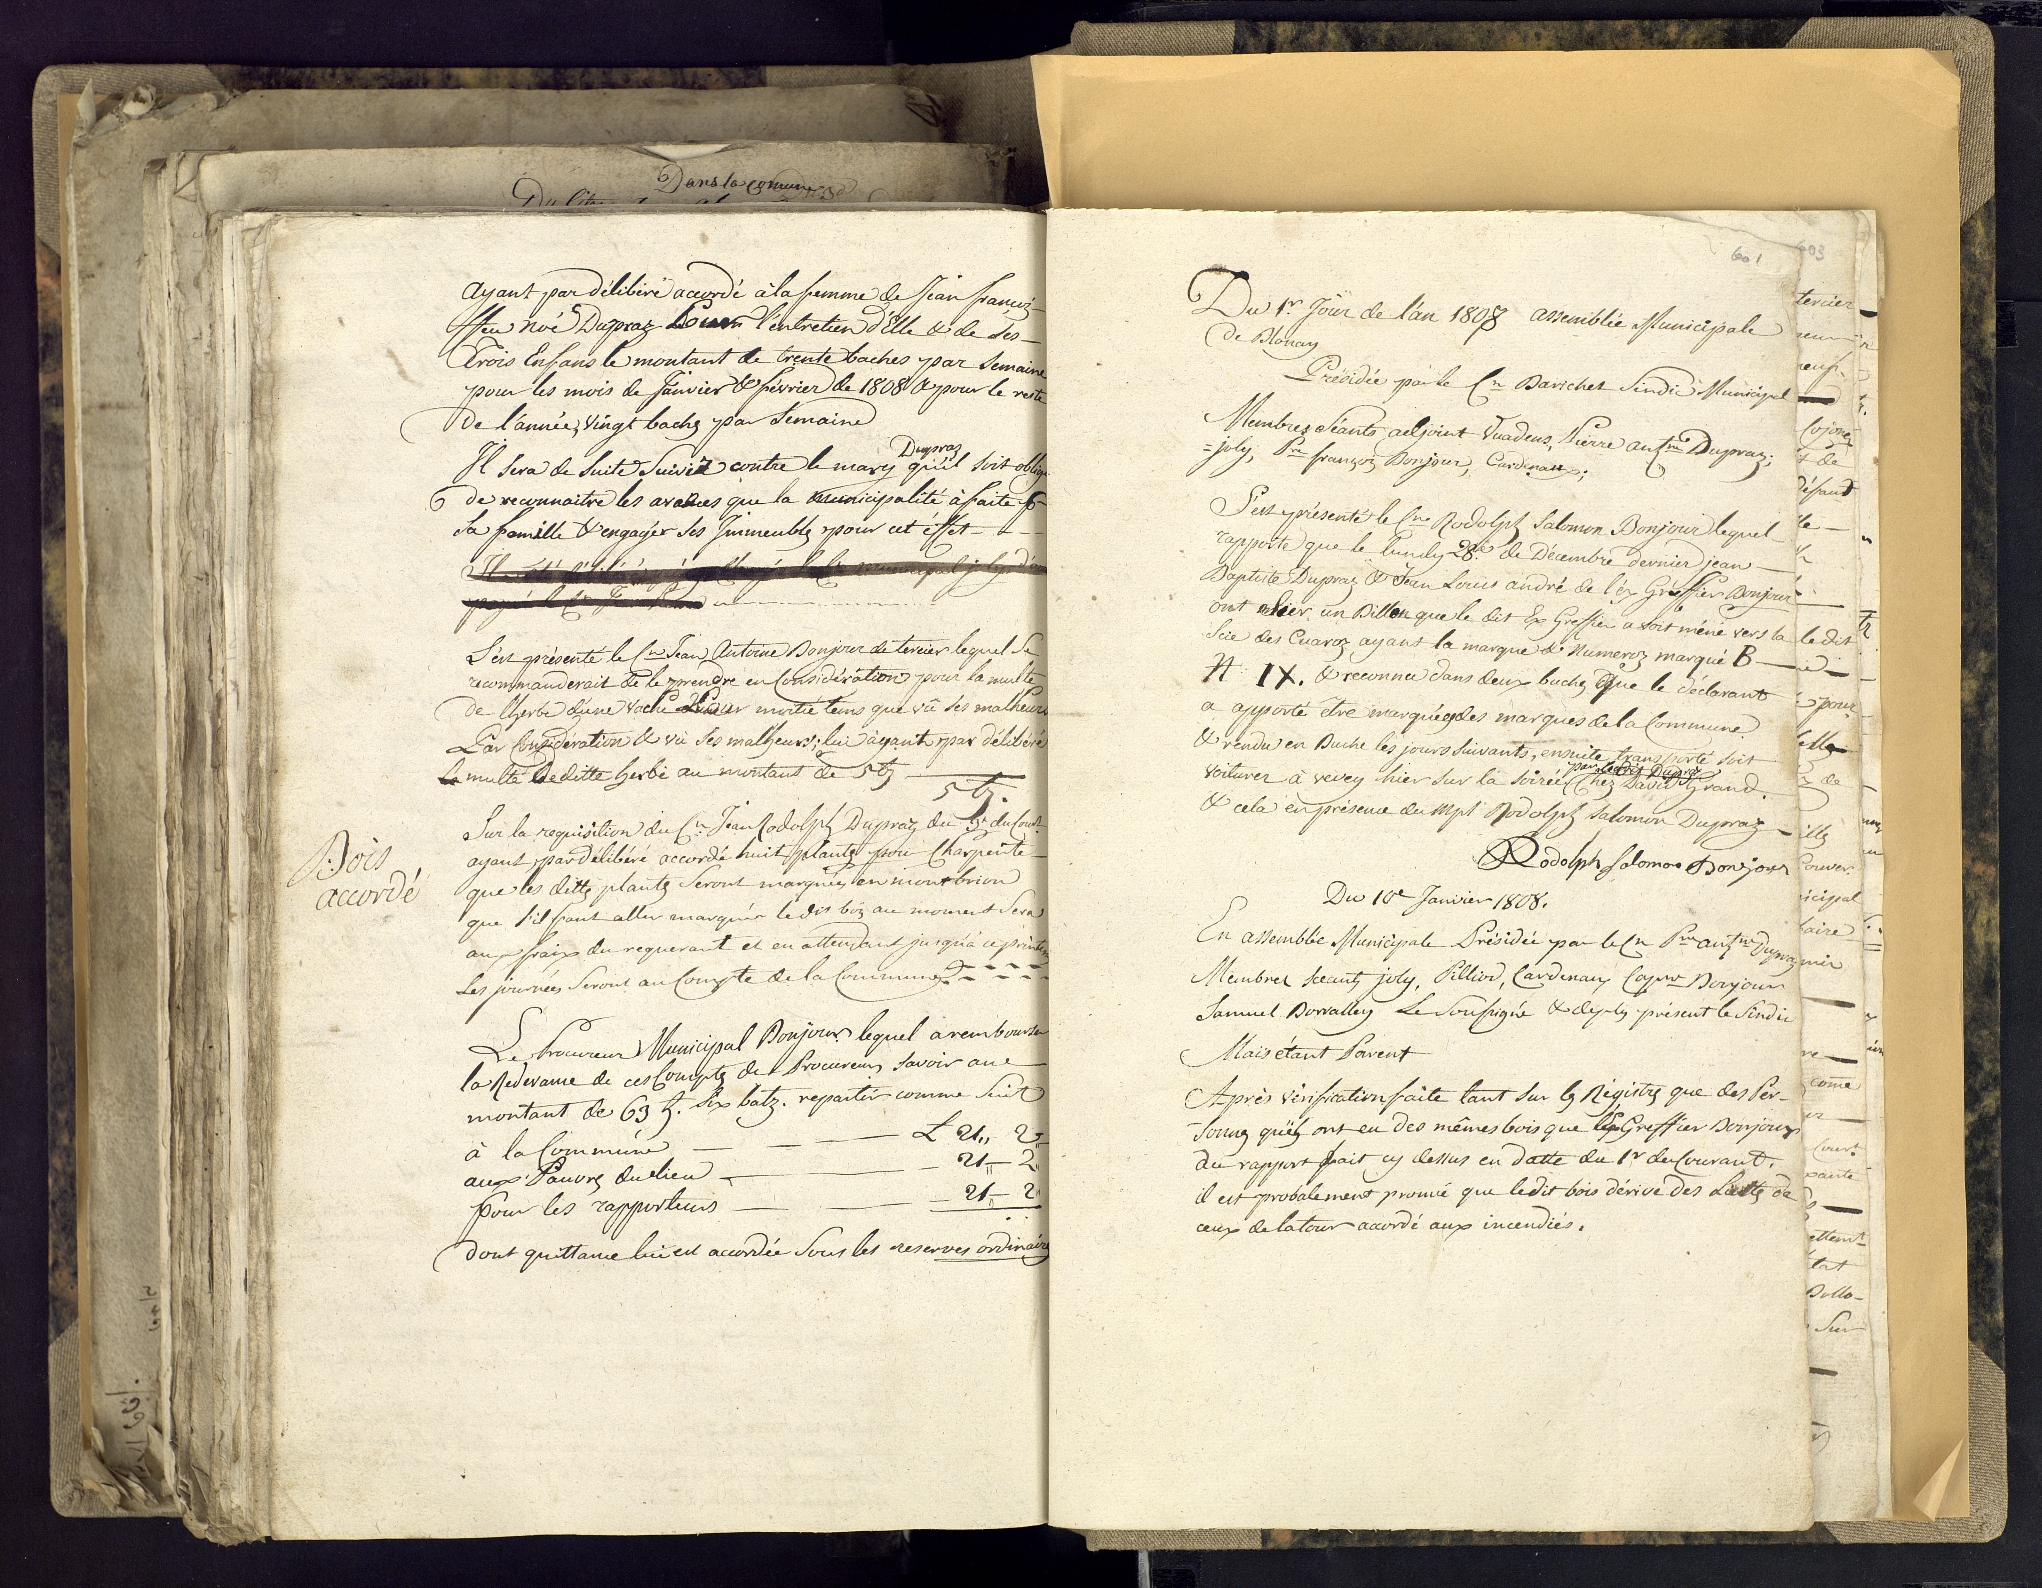 Dans la comune
ayant par délibéré accordé à la femme de Jean françois
ffeu noé Dupraz pour l'entretien d'Elle & de ses
Trois Enfans le montant de trente baches par Semaine
pour les mois de Janvier & février de 1808 & pour le reste
de l'année, vingt bachs par Semaine
Dupraz
Il sera de suite suivit contre le mary qu'il soit obligé
de reconnaitre les avances que la municipalité à faite pr
sa famille & engager ses Immeubles pour cet éffet
S'est présenté le Cn Jean Antoine Bonjour de tercier lequel se
recommanderait de le prendre en Considération pour la multe
de lherbe d'une vache pour moitié tems que vû ses malheurs
Par Considération & vû ses malheurs; lui ayant par délibéré
la multe de ditte herbe au montant de 5 fs
5 fs.
Bois
accordé
Sur la requisition du Cn Jean Rodolph Dupraz du 5e du Cour.t
ayant par délibéré accordé huit plantes pour Charpente
que les dittes plantes seront marquées en montbrion
que s'il faut aller marquér le dis boi au moment Sera
aux fraix du requerant et en attendant jusqu'à ce printems
les journées seront au Compte de la Commune
Le Procureur Municipal Bonjour lequel a rembourser
la Redevance de ces Comptes de Procureur savoir au
montant de 63 f. Six batz. repartir comme suit
à la Commune L 21,, 2
aux Pauvres du lieu 21,, 2
pour les rapporteurs 21,, 2
dont quittance lui est accordée Sous les reserves ordinaires
601
603
Du 1r Jour de l'an 1808 assemblée Municipale
de Blonay
Présidée par le Cn Barichet Sindic Municipal
Membres Séants adjoint Vuadens, Pierre antne Dupraz;
=joly, Pre françois Bonjour, Cardenaux;
S'est présenté le Cne Rodolph Salomon Bonjour lequel
rapporte que le Lundy 28e de Décembre dernier jean
Baptiste Dupraz & Jean Louis andré de l'ex Greffier Bonjour
ont scier un Billon que le dit Ex Greffier avoit méné vers la
Scie des Cuaroz ayant la marque & Numeroz marqué B
N IX. & reconnu dans deux buches que le déclarant
a apporté étre marquées des marques de la Commune
& rendu en Buche les jours suivants, ensuite transporté soit
par ledit Dupraz
voiturer à vevey hier sur la soirée Chez David Grand.
& cela en présence du Mpl Rodolph Salomon Dupraz
Rodolph Salomon Bonjour
Du 10e Janvier 1808.
En assemblée Municipale Présidée par le Cn Pre antne Dupraz
Membres séants joly, Pilliod, Cardenaux Capne Bonjour
Samuel Borralley Le Soussigné & depuis présent le Sindic
Mais étant Parent
Après vérification faite tant sur les Régistres que des Per-
sonnes qu'els ont eu des mêmes bois que l'ex Greffier Bonjour
du rapport fait cy dessus en datte du 1r du Courant.
il est probalement prouvé que ledit bois dérive des Lattes de
ceux de latour accordé aux incendiés.